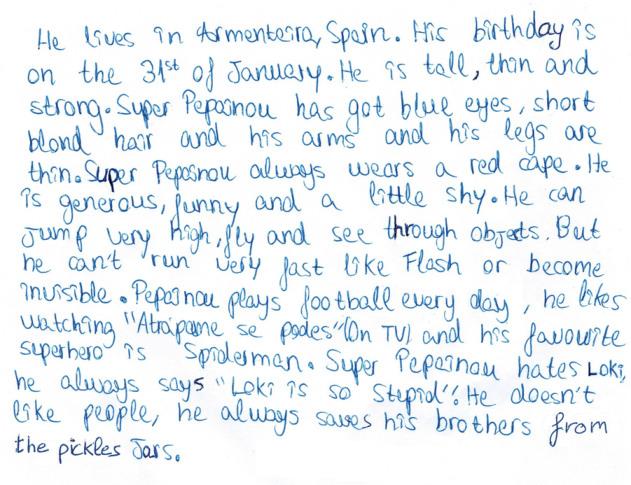 He lives in Armenteira, Spain. His birthday is
on the 31st of January. He is tall, thin and
strong. Super Pepoinou has got blue eyes, short
blond hair and his arms and his legs are
thin. Super Pepoinou always wears a red cape. He
is generous, funny and a little shy. He can
jump very high, fly and see through objects. But
he can't run very fast like Flash or become
invisible. Pepoinou plays football every day, he likes
watching "Atrápame se podes" (On TV) and his favouite
superhero is Spiderman. Super Pepoinou hates Loki,
he always says "Loki is so Stepid". He doesn't
like people, he always saves his brothers from
the pickles Jars.